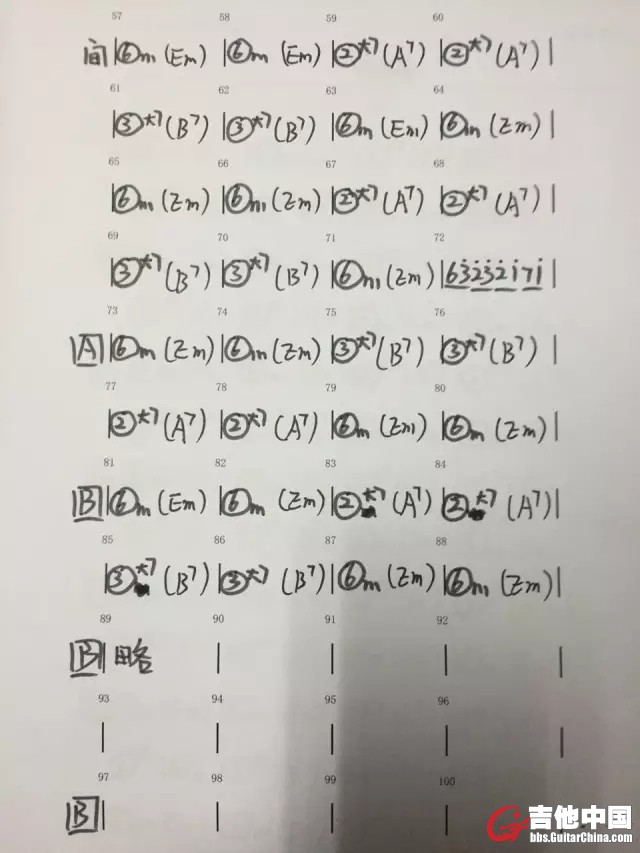 57 58 59 60
间 |⑥m(Em) |⑥m(Em) |②大7(A7) |②大7(A7) |
61 62 63 64
|③大7(B7) |③大7(B7) |⑥m(Em) |⑥m(Em) |
65 66 67 68
|⑥m(Em) |⑥m(Em) |②大7(A7) |②大7(A7) |
69 70 71 72
|③大7(B7) |③大7(B7) |⑥m(Em) |63232171 |
73 74 75 76
A |⑥m(Em) |⑥m(Em) |③大7(B7) |③大7(B7) |
77 78 79 80
|②大7(A7) |②大7(A7) |⑥m(Em) |⑥m(Em) |
81 82 83 84
B |⑥m(Em) |⑥m(Em) |②大7(A7) |②大7(A7) |
85 86 87 88
|③大7(B7) |③大7(B7) |⑥m(Em) |⑥m(Em) |
89 90 91 92
B | 略 | | | |
93 94 95 96
| | | | |
97 98 99 100
B | | | |
吉他中国
bbs.GuitarChina.com